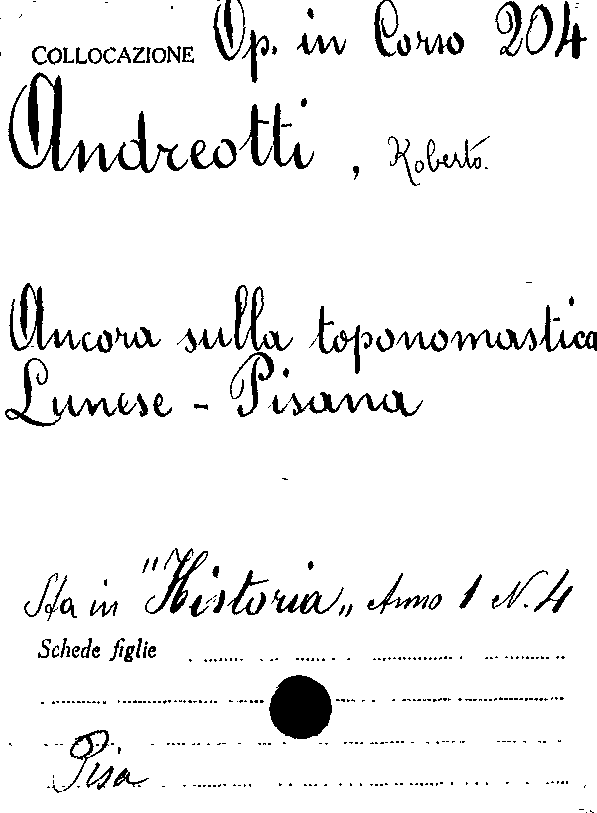 COLLOCAZIONE Op. in Corso 204
Andreotti, Roberto.
Ancora sulla toponomastica
Lunese - Pisana
Sta in "Historia„ Anno 1 N. 4
Schede figlie
Pisa